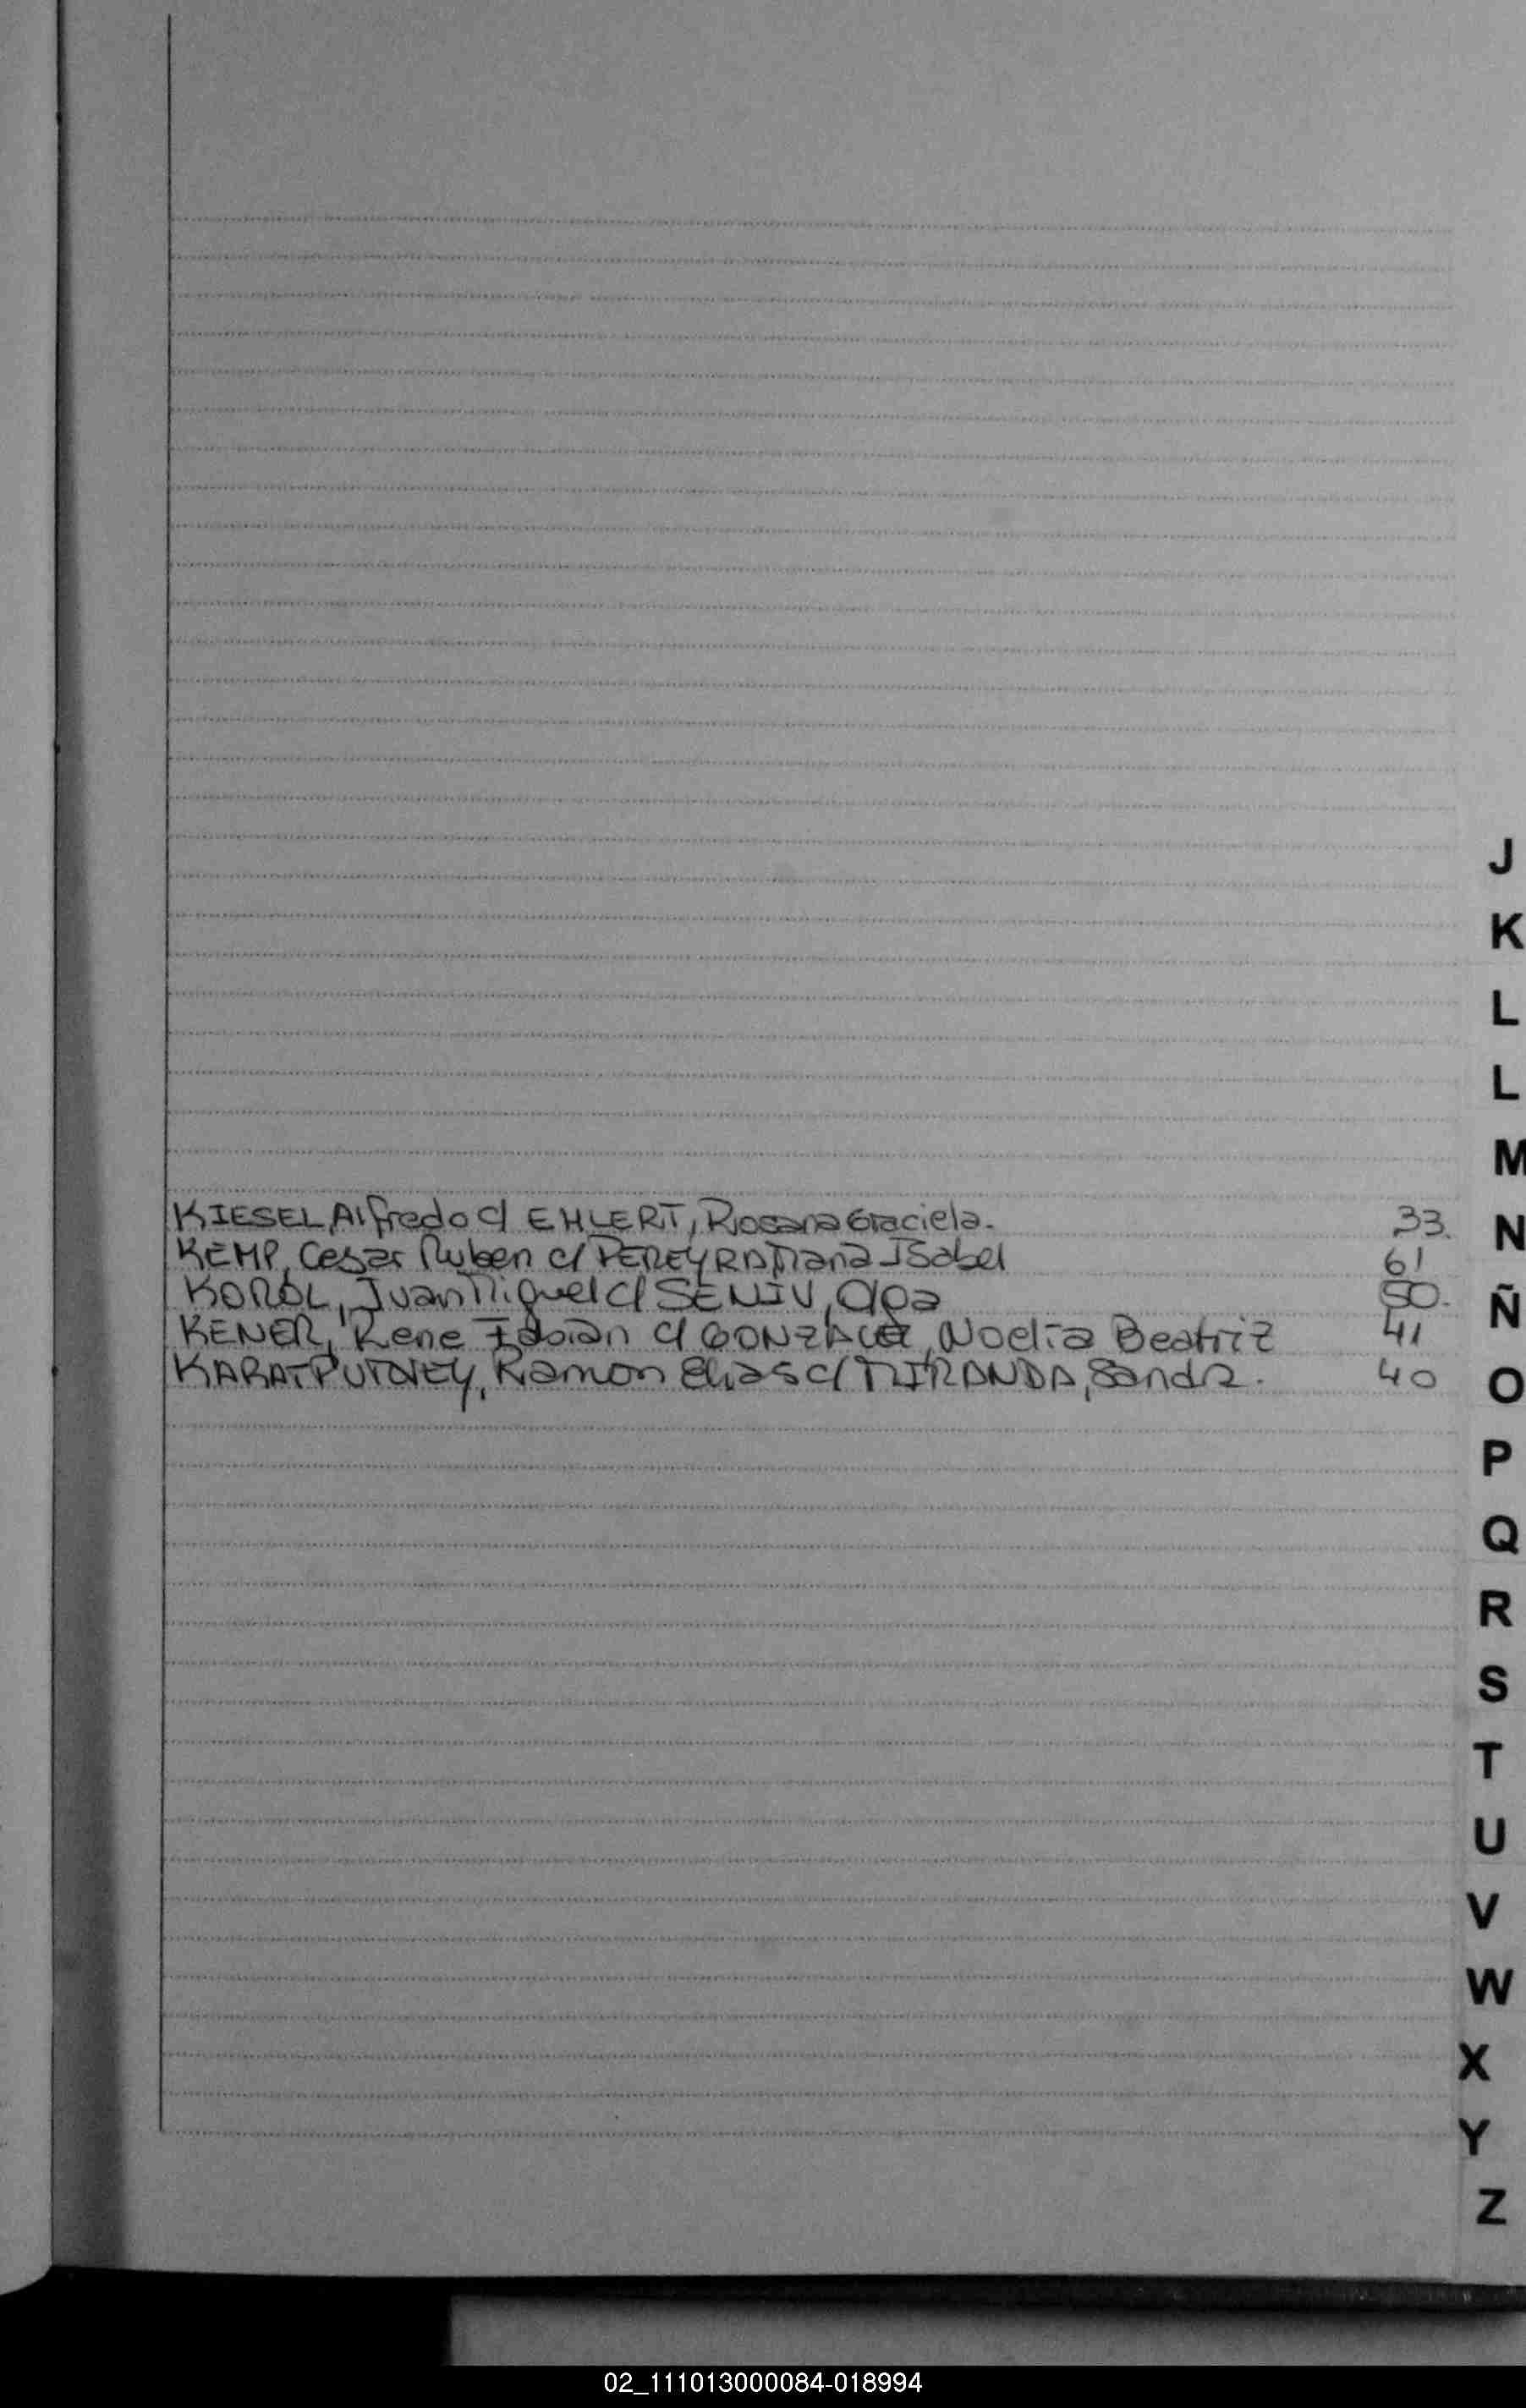 KIESEL, Alfredo c/ EHLERT, Rosana Graciela. 33.
KEMP, Cesar Ruben c/ PEREYRA Diana Isabel 61
KOROL, Juan Miguel c/ SENIV, Olga 50.
KENER, Rene Fabian c/ Noelia Beatriz 41
Ramon Elias c/ MIRANDA, Sandra. 40
J
K
L
L
M
N
Ñ
O
P
Q
R
S
T
U
V
W
X
Y
Z
02_111013000084-018994